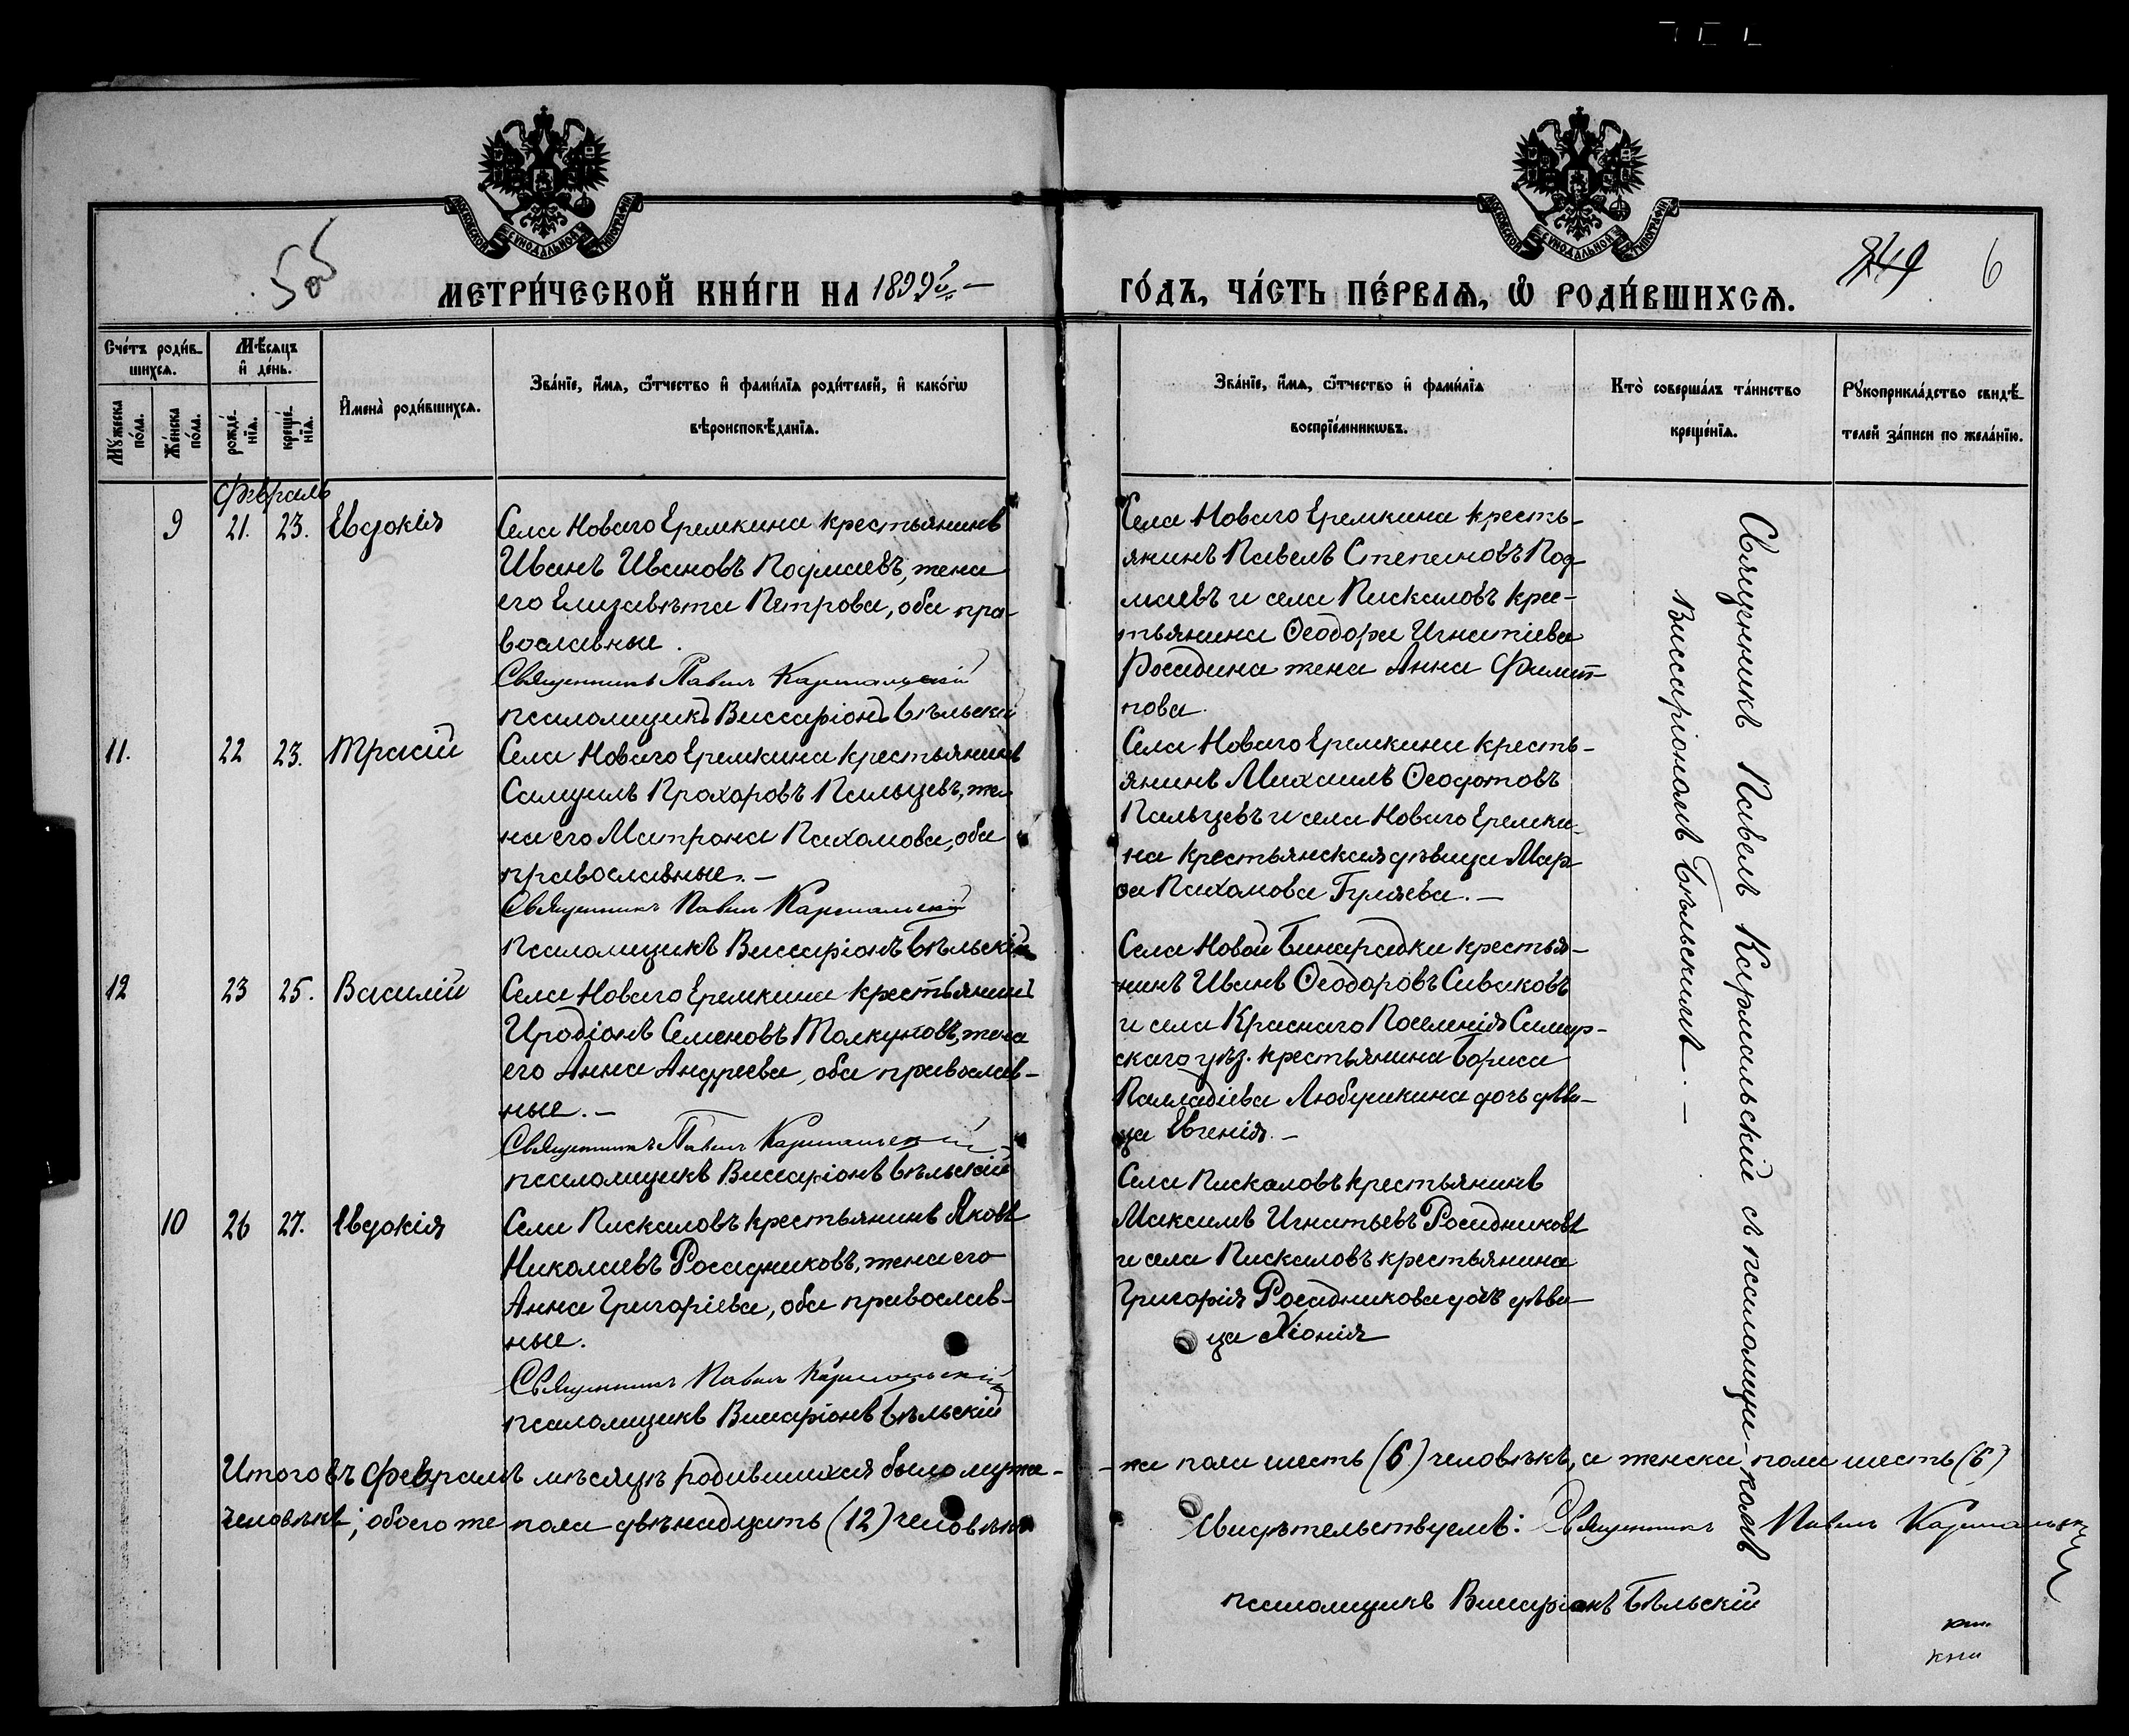 МОСКОВСКОЙ СУНОДАЛЬНОЙ ТИПОГРАФІИ
МОСКОВСКОЙ СУНОДАЛЬНОЙ ТИПОГРАФІИ
505
249 6
МЕТРИ́ЧЕСКОЙ КНИ́ГИ НА 1899й —
ГО́ДЪ, ЧА́СТЬ ПЕ́РВАѦ, Ѽ РОДИ́ВШИХСѦ.
Сче́тъ роди́в-
шихсѧ.
Мѣ́сяцъ
и҆ де́нь.
Мꙋжеска по́ла.
Же́нска по́ла.
рожде́-
нїѧ.
креще́-
нїѧ.
И҆мена̀ роди́вшихсѧ.
Зва́нїе, и҆́мѧ, ѻ҆́тчество и҆ фами́лїѧ роди́телей, и҆ како́гѡ
вѣроисповѣ́данїѧ.
Зва́нїе, и҆́мѧ, ѻ҆́тчество и҆ фами́лїѧ
воспрїе́мникѡвъ.
Кто̀ соверша́лъ та́инство
креще́нїѧ.
Рꙋкоприкла́дство свидѣ́-
телей за́писи по жела́нїю.
Февраль
9 21. 23. Евдокія
Села Новаго Еремкина крестьянинъ
Иванъ Ивановъ Подмаевъ, жена
его Елизавѣта Петрова, оба пра-
вославные.
Священникъ Павелъ Кармальскій
псаломщикъ Виссаріонъ Бѣльскій
Села Новаго Еремкина кресть-
янинъ Павелъ Степановъ Под-
маевъ и села Пискаловъ крес-
тьянина Ѳеодора Игнатіева
Росадина жена Анна Филип-
пова.
11. 22 23. Тарасій
Села Новаго Еремкина крестьянинъ
Самуилъ Прохоровъ Пальцевъ, же-
на его Матрона Пахомова, оба
православные. —
Священникъ Павелъ Кармальскій
псаломщикъ Виссаріонъ Бѣльскій
Села Новаго Еремкина кресть-
янинъ Михаилъ Ѳеодотовъ
Пальцевъ и села Новаго Еремки-
на крестьянская дѣвица Мар-
ѳа Пахомова Гуляева. —
12 23 25. Василій
Села Новаго Еремкина крестьянинъ
Иродіонъ Семеновъ Толкуновъ, жена
его Анна Андреева, оба православ-
ные. —
Священникъ Павелъ Кармальскій
псаломщикъ Виссаріонъ Бѣльскій
Села Новой Бинарадки крестья-
нинъ Иванъ Ѳеодоровъ Сиваковъ
и села Краснаго Поселенія Самар-
скаго уѣз. крестьянина Бориса
Палладіева Любушкина дочь дѣви-
ца Евгенія. —
10 26 27. Евдокія
Села Пискаловъ крестьянинъ Яковъ
Николаевъ Росадниковъ, жена его
Анна Григоріева, оба православ-
ные.
Священникъ Павелъ Кармальскій
псаломщикъ Виссаріонъ Бѣльскій
Села Пискаловъ крестьянинъ
Максимъ Игнатьевъ Росадниковъ
и села Пискаловъ крестьянина
Григорія Росадникова дочь дѣви-
ца Хіонія
Священникъ Павелъ Кармальскій съ псаломщи-комъ
Виссаріономъ Бѣльскимъ. —
Итого въ Февралѣ мѣсяцѣ родившихся было муже-
-ка пола шесть (6) человѣкъ, а женска пола шесть (6)
человѣкъ; обоего же пола двѣнадцать (12) человѣкъ
Свидѣтельствуемъ: Священникъ Павелъ Кармальскій
псаломщикъ Виссаріонъ Бѣльскій